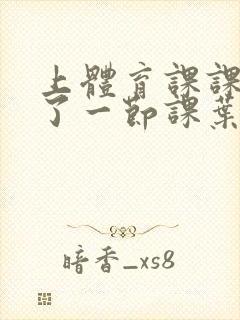 上體育課課
了一節課葉
暗香_xs8